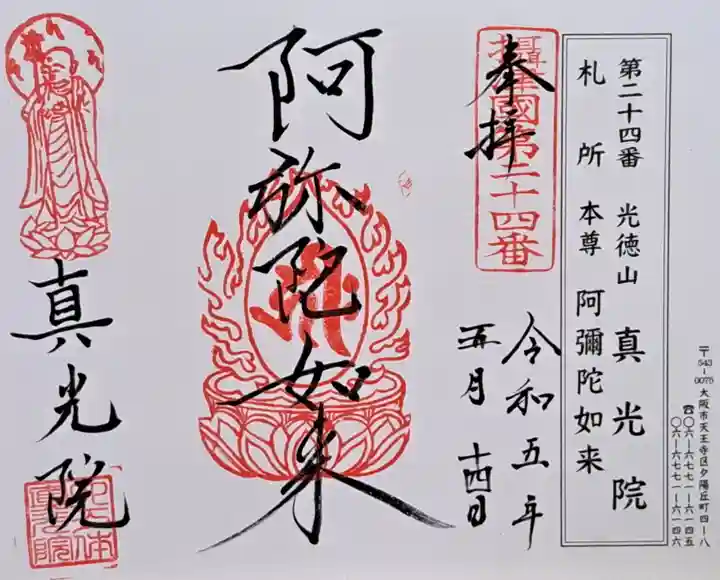 〒543-0075 大阪市天王寺区夕陽丘町四-八
☎〇六-六七七一-六一四五
〇六-六七七一-六一四六
第二十四番 光徳山 真光院
札所 本尊 阿彌陀如来
攝津國第二十四番
奉拝
令和五年
五月 十四日
阿弥陀如来
真光院